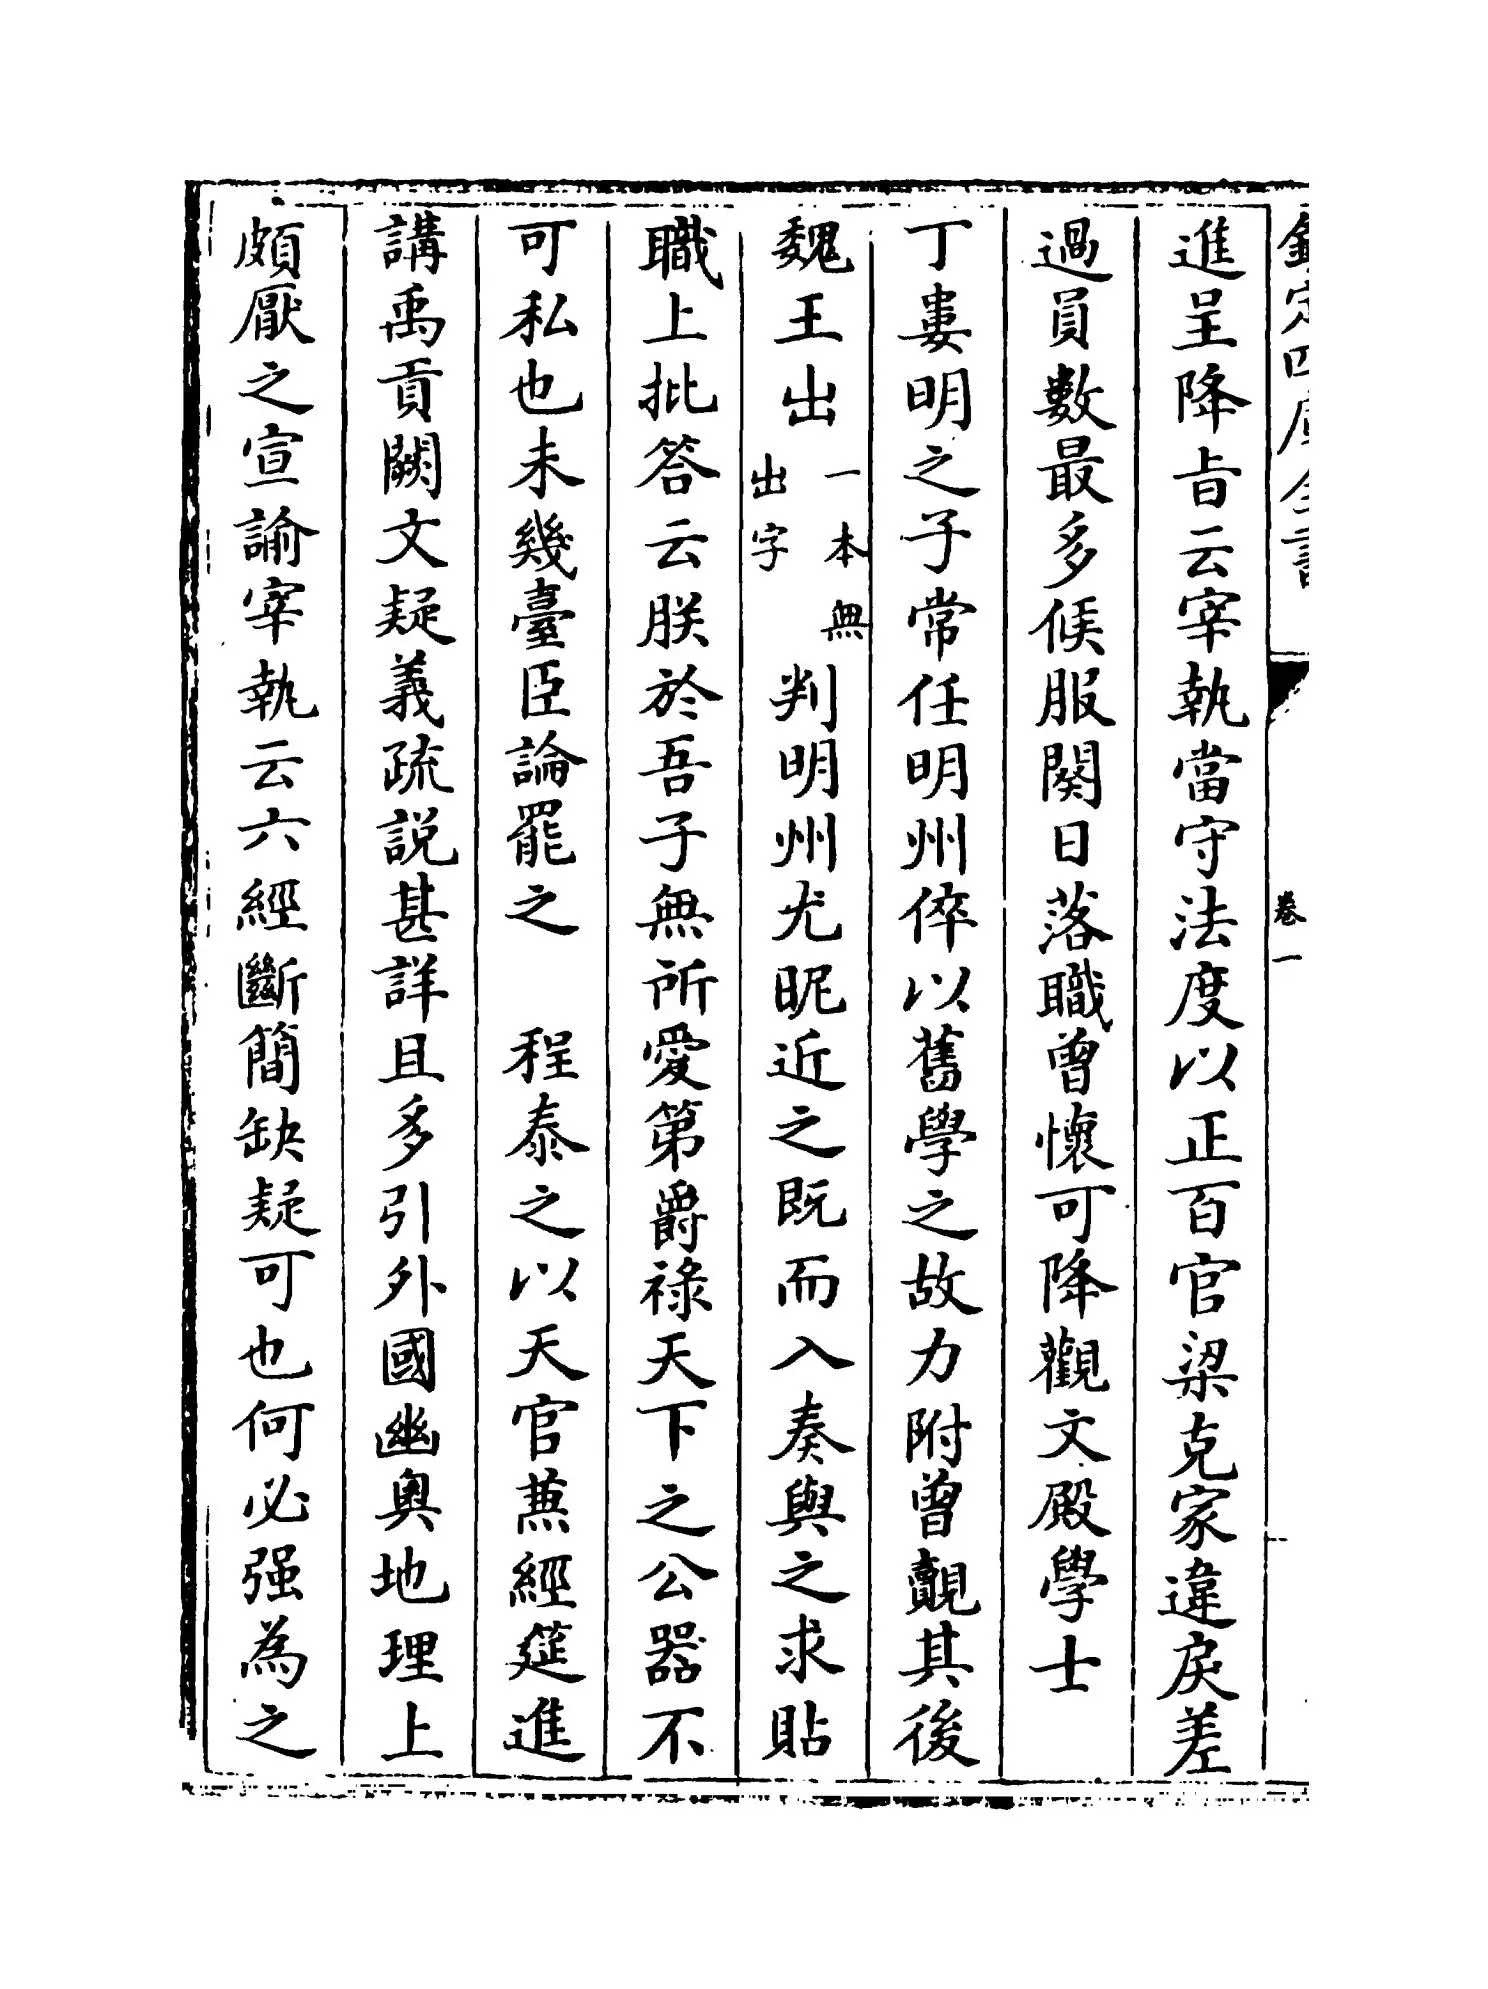 欽定四庫全書
卷一
進呈降旨云宰執當守法度以正百官梁克家違戾差
過員數最多俟服闋日落職曾懷可降觀文殿學士
丁婁明之子常任明州倅以舊學之故力附曾覿其後
魏王出一本無出字判明州尤昵近之既而入奏與之求貼
職上批答云朕於吾子無所愛第爵祿天下之公器不
可私也未幾臺臣論罷之　程泰之以天官兼經筵進
講禹貢闕文疑義疏說甚詳且多引外國幽奧地理上
頗厭之宣諭宰執云六經斷簡缺疑可也何必强為之